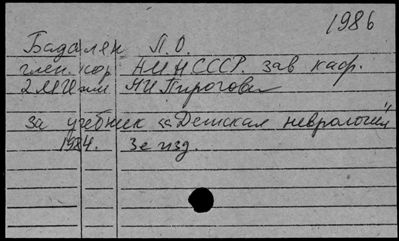 1986
Бадалян Л.О.
член.кор. АМН СССР. зав каф.
2 МИ им Н И Пирогова
за учебник "Детская неврология"
1984. 3е изд.